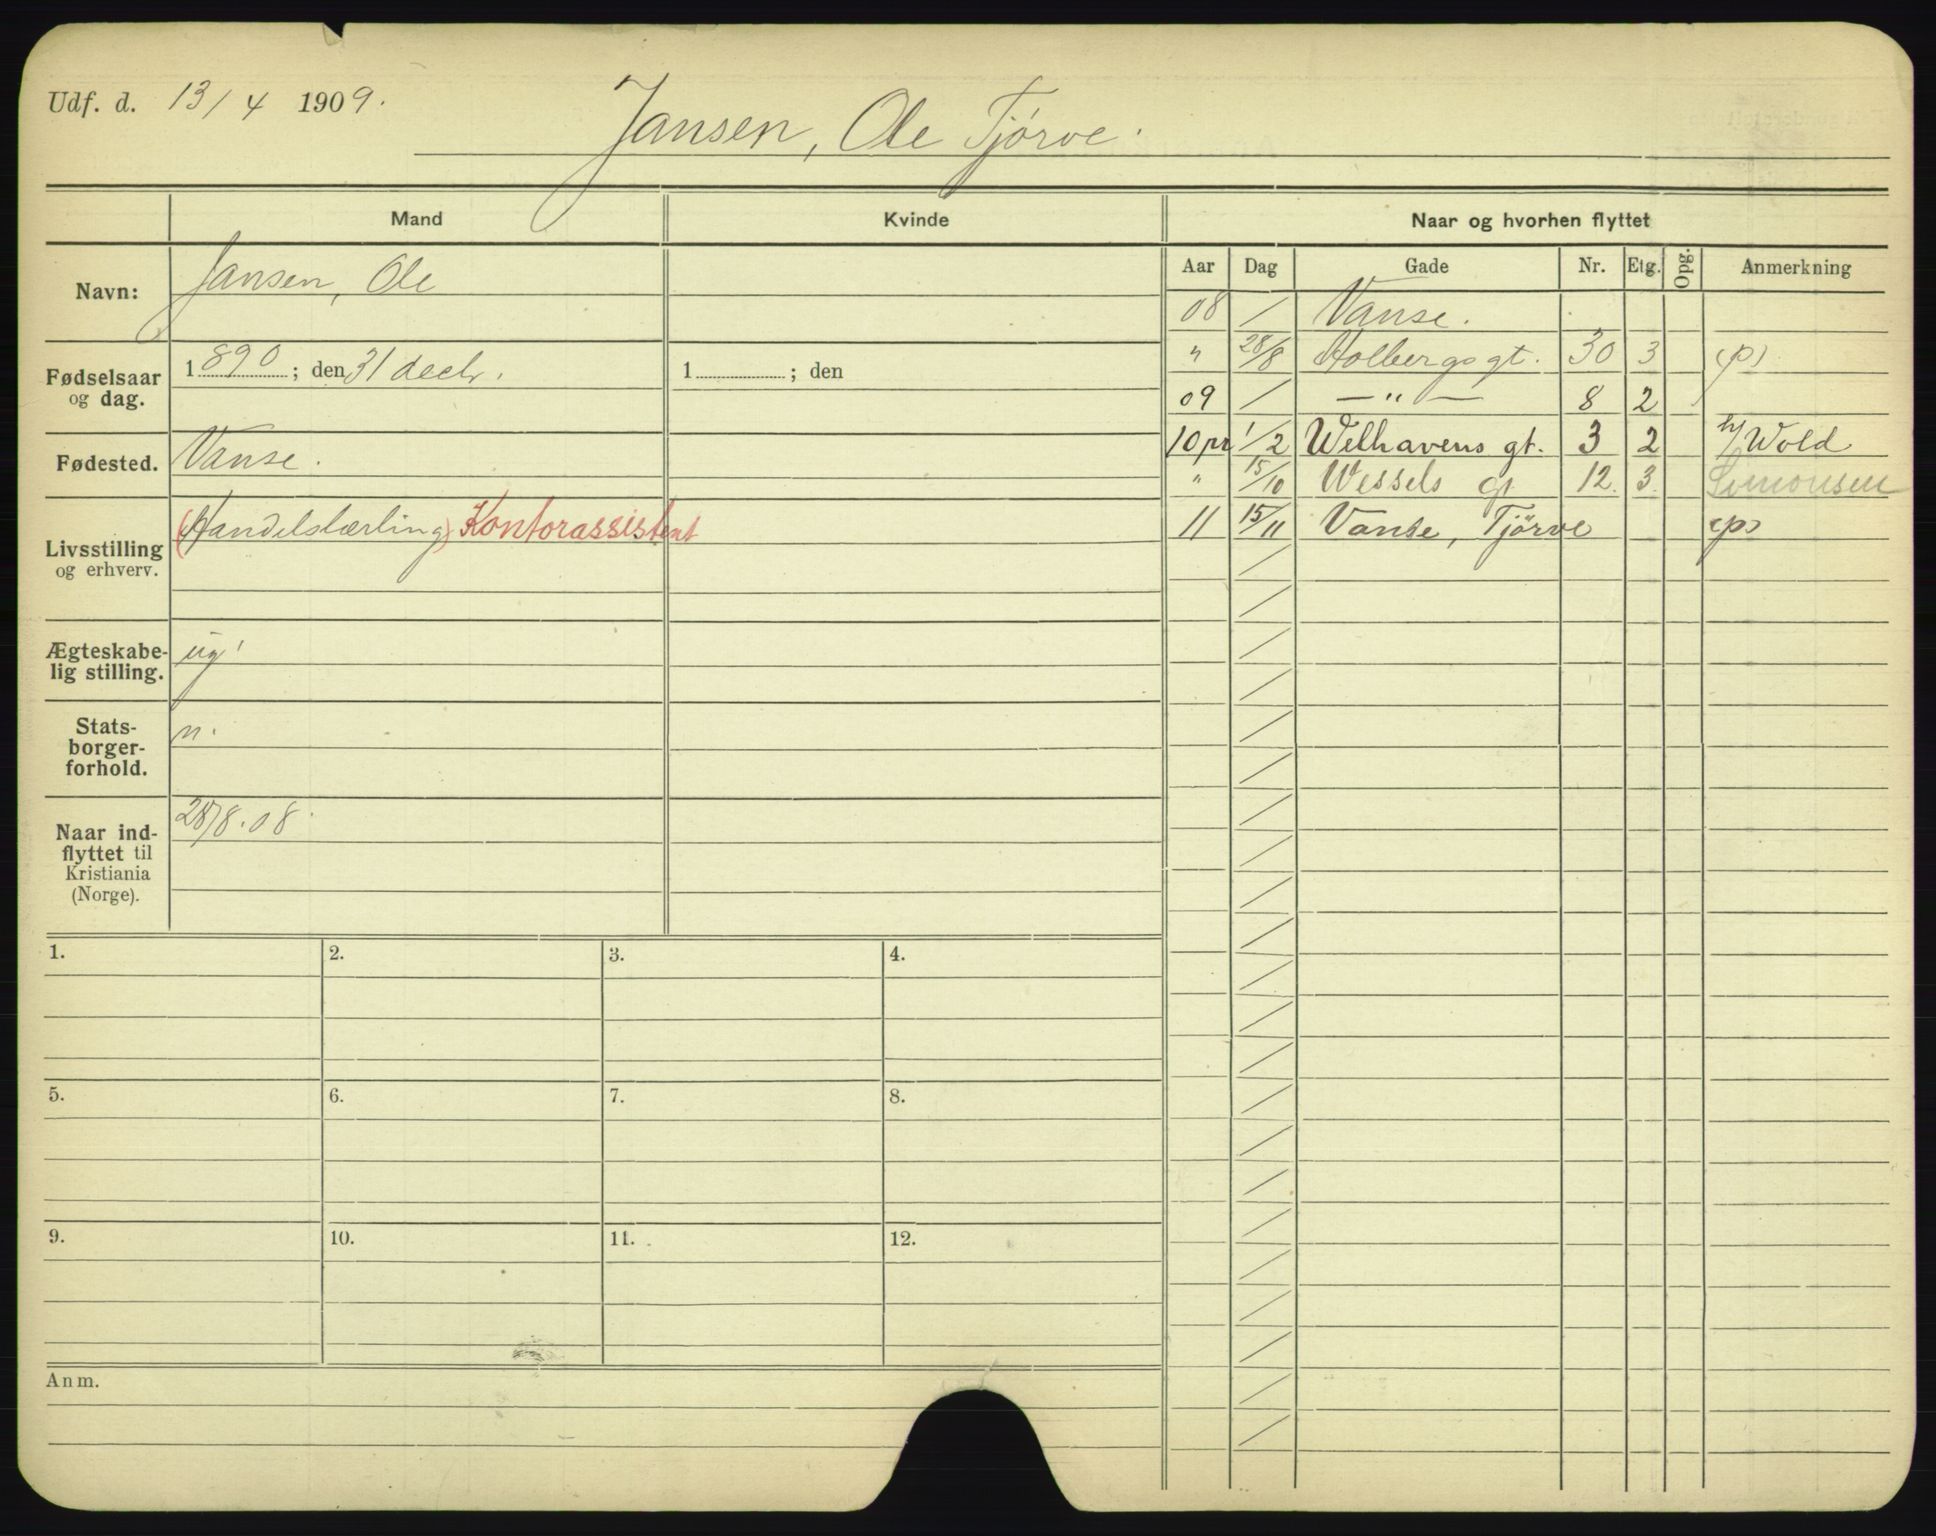 Udf. d. 13/4 1909.
Jansen, Ole Tjörve.
Mand
Kvinde
Naar og hvorhen flyttet
Aar Dag Gade Nr. Etg. Opg. Anmerkning
Navn: Jansen, Ole
Fødselsaar og dag. 1890; den 31 decbr. 1 ; den
Fødested. Vanse.
Livsstilling og erhverv. (Handelslærling) Kontorassistent
Ægteskabelig stilling. ug
Statsborgerforhold. n.
Naar indflyttet til Kristiania (Norge). 28/8.08.
08 / Vanse.
" 28/8 Holbergs gt. 30 3 (p)
09 / — " — 8 2
10 pr 1/2 Welhavens gt. 3 2 h/ Wold
" 15/10 Wessels gt 12. 3. Simonsen
11 15/11 Vanse, Tjörve (p)
1. 2. 3. 4.
5. 6. 7. 8.
9. 10. 11. 12.
Anm.